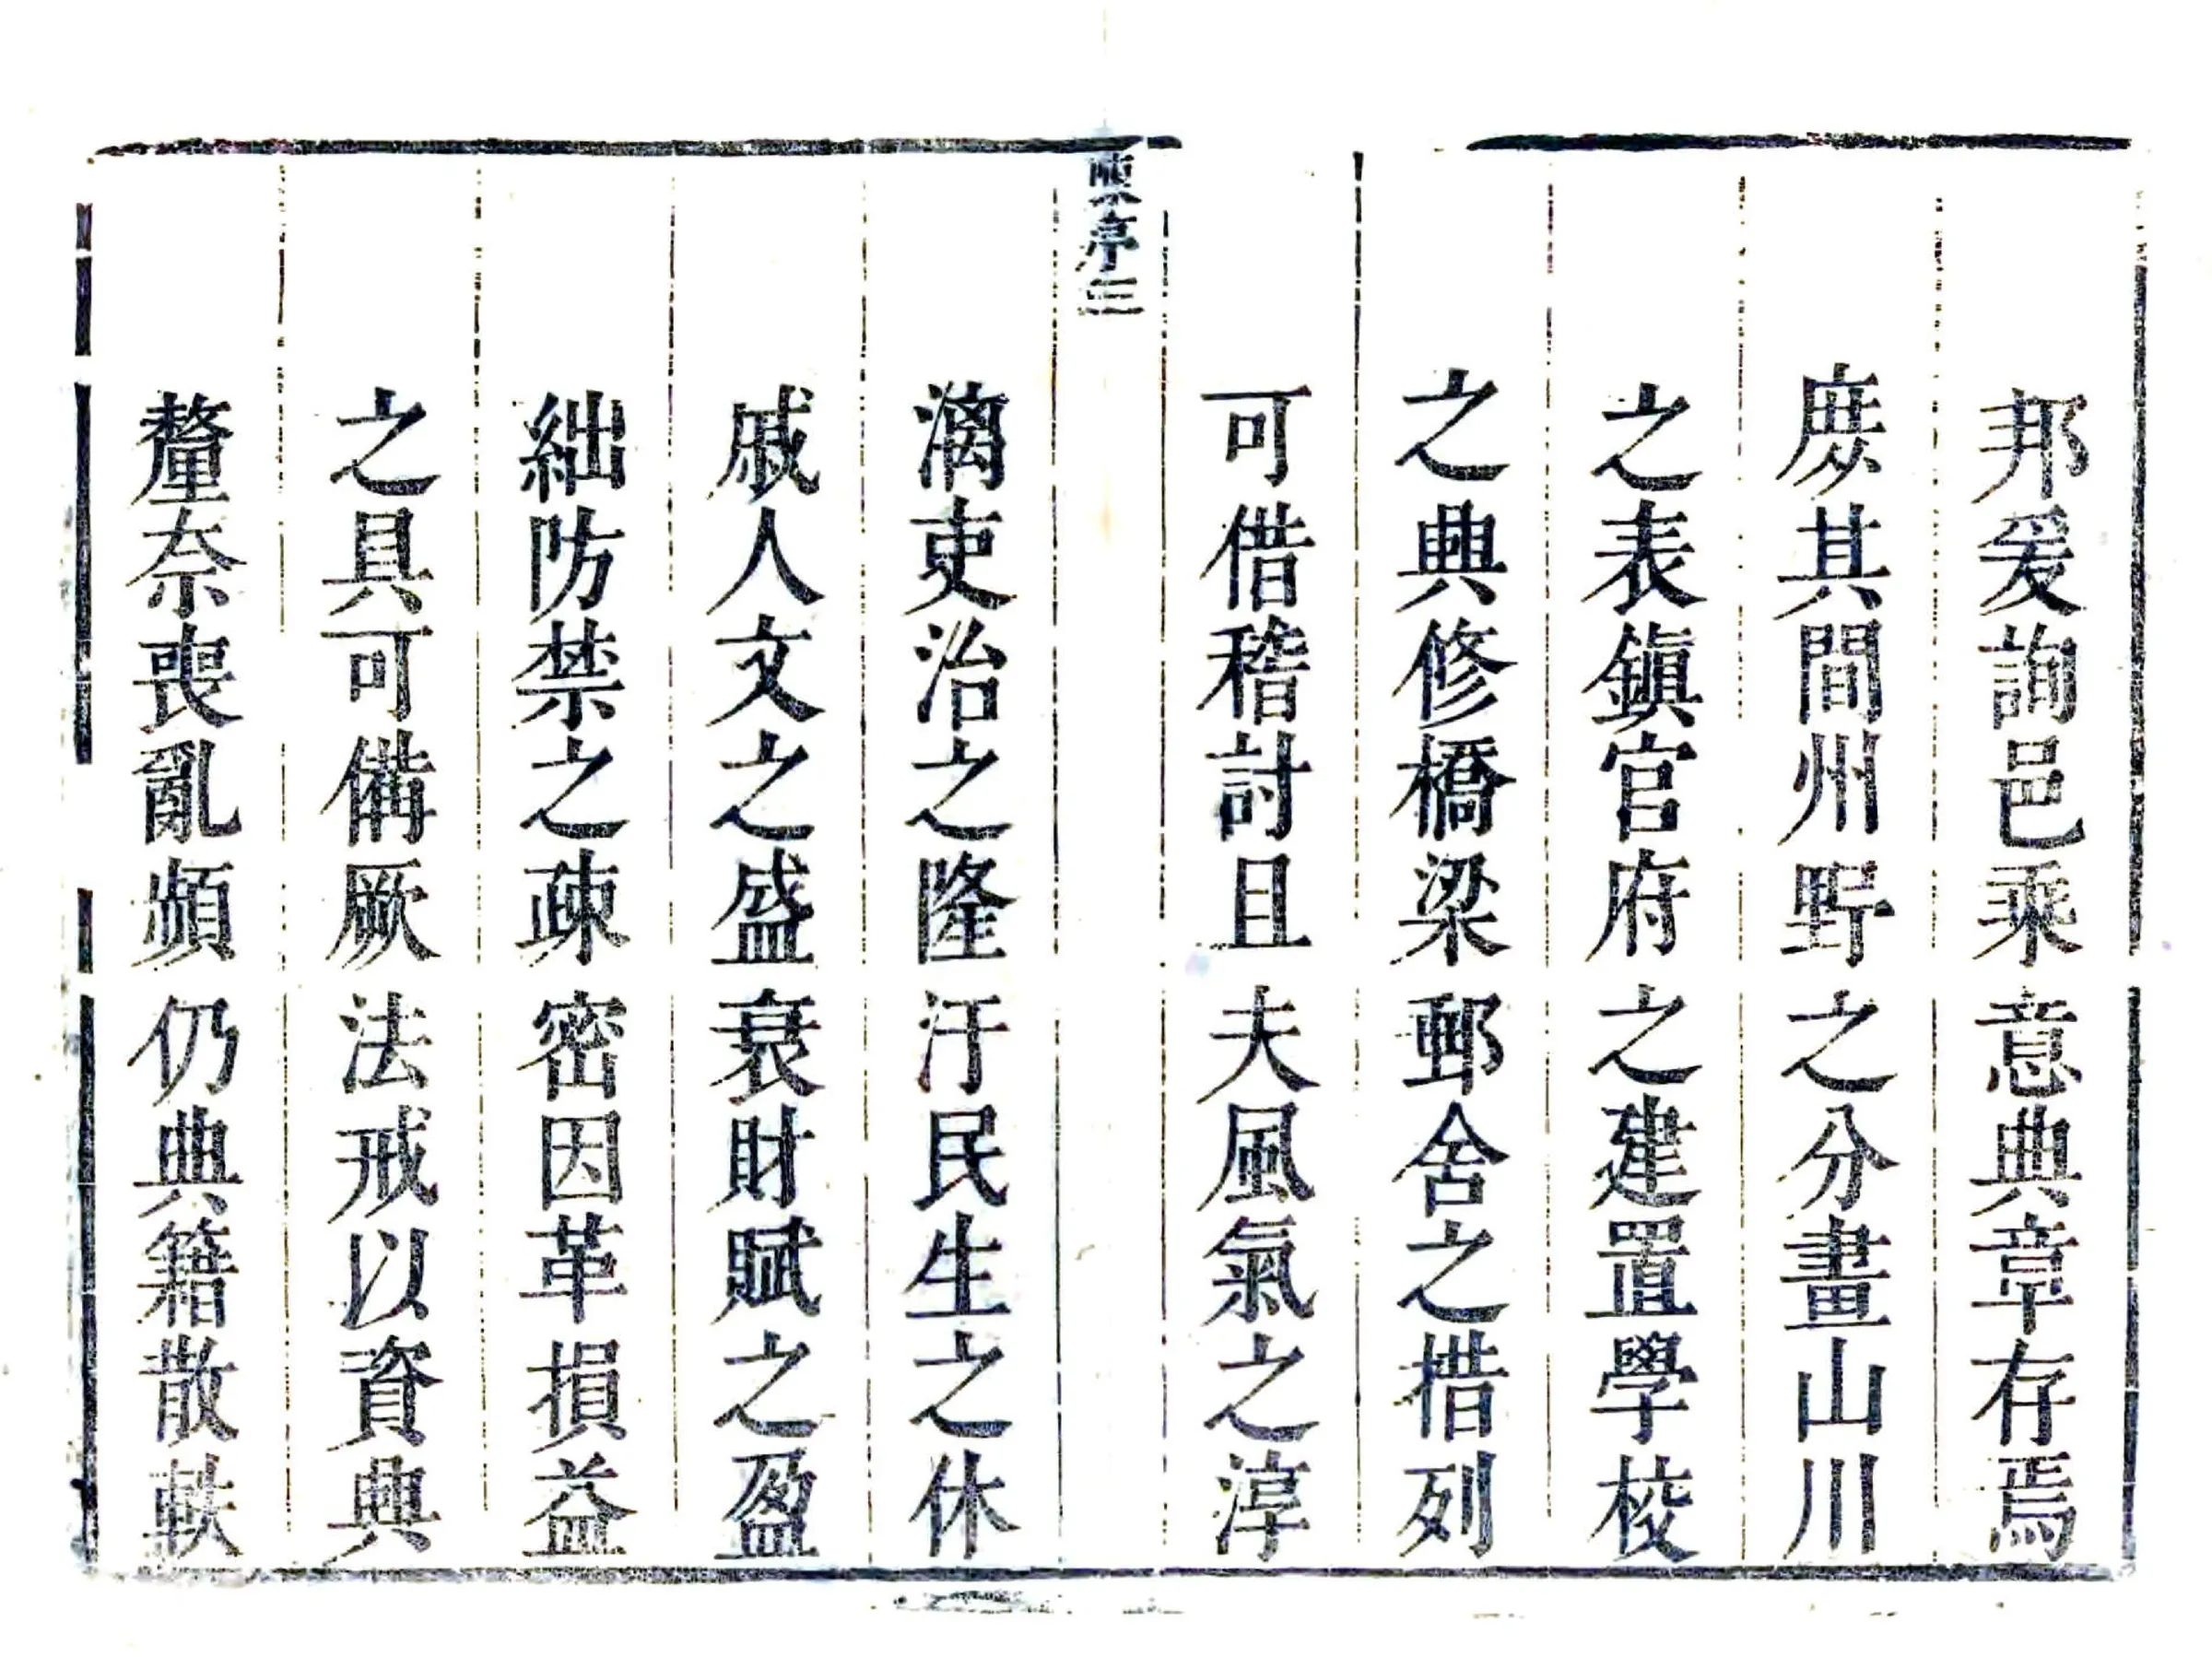 邦爰詢邑乘意典章存焉
庶其間州野之分畫山川
之表鎮官府之建置學校
之典修橋梁郵舍之措列
可借稽討且夫風氣之淳
序三
漓吏治之隆汙民生之休
戚人文之盛衰財賦之盈
絀防禁之疎密因革損益
之具可備厥法戒以資典
釐奈喪亂頻仍典籍散軼